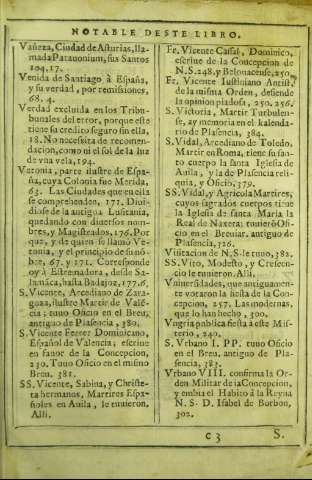 NOTABLE DESTE LIBRO.
Vañeza, Ciudad de Asturias, lla-
mada Patauonium, sus Santos
104.17.
Venida de Santiago à España,
y su verdad, por remisiones,
68. 4.
Verdad excluida en los Tribu-
bunales del error, porque este
tiene su credito seguro sin ella,
18. No necesita de recomen-
dacion, como ni el sol de la luz
de vna vela, 194.
Vetonia, parte ilustre de Espa-
ña, cuya Colonia fue Merida,
63. Las Ciudades que en ella
se comprehenden, 171. Diui-
diose de la antigua Lusitania,
quedando con diuersos nom-
bres, y Magistrados, 176. Por
que, y de quien se llamò Ve-
tonia, y el principio de su nõ-
bre, 67. y 171. Corresponde
oy à Estremadura, desde Sa-
lamãca, hasta Badajoz, 177.6.
S. Vicente, Arcediano de Zara-
goza, ilustre Martir de Valē-
cia; tuuo Oficio en el Breu.
antiguo de Plasencia, 380.
S. Vicente Ferrer Dominicano,
Español de Valencia; escriue
en fauor de la Concepcion,
250. Tuuo Oficio en el mismo
Breu. 381.
SS. Vicente, Sabina, y Christe-
ta hermanos, Martires Espa-
ñoles en Auila, le tuuieron.
Alli.
Fr. Vicente Casas, Dominico,
escriue de la Concepcion de
N. S. 248. y Belouacense, 250.
Fr. Vicente Iustiniano Antist,
de la misma Orden, defiende
la opinion piadosa, 250. 256.
S. Victoria, Martir Turbulen-
se, ay memoria en el kalenda-
rio de Plasencia, 384.
S. Vidal, Arcediano de Toledo,
Martir en Roma, tiene su san-
to cuerpo la santa Iglesia de
Auila, y la de Plasencia reli-
quia, y Oficio, 379.
SS. Vidal, y Agricola Martires,
cuyos sagrados cuerpos tiene
la Iglesia de santa Maria la
Real de Naxera; tuuierõ Ofi-
cio en el Breuiar. antiguo de
Plasencia, 326.
Visitacion de N. S. le tuuo, 382.
SS. Vito, Modesto, y Crescen-
cio le tuuieron. Alli.
Vniuersidades, que antiguamen-
te votaron la fiesta de la Con-
cepcion, 257. Las modernas,
que lo han hecho, 300.
Vngria publica fiesta à este Mis-
terio, 240.
S. Vrbano I. PP. tuuo Oficio
en el Breu. antiguo de Pla-
sencia, 383.
Vrbano VIII. confirma la Or-
den Militar de la Concepcion,
y embia el Habito à la Reyna
N. S. D. Isabel de Borbon,
302.
C 3
S.